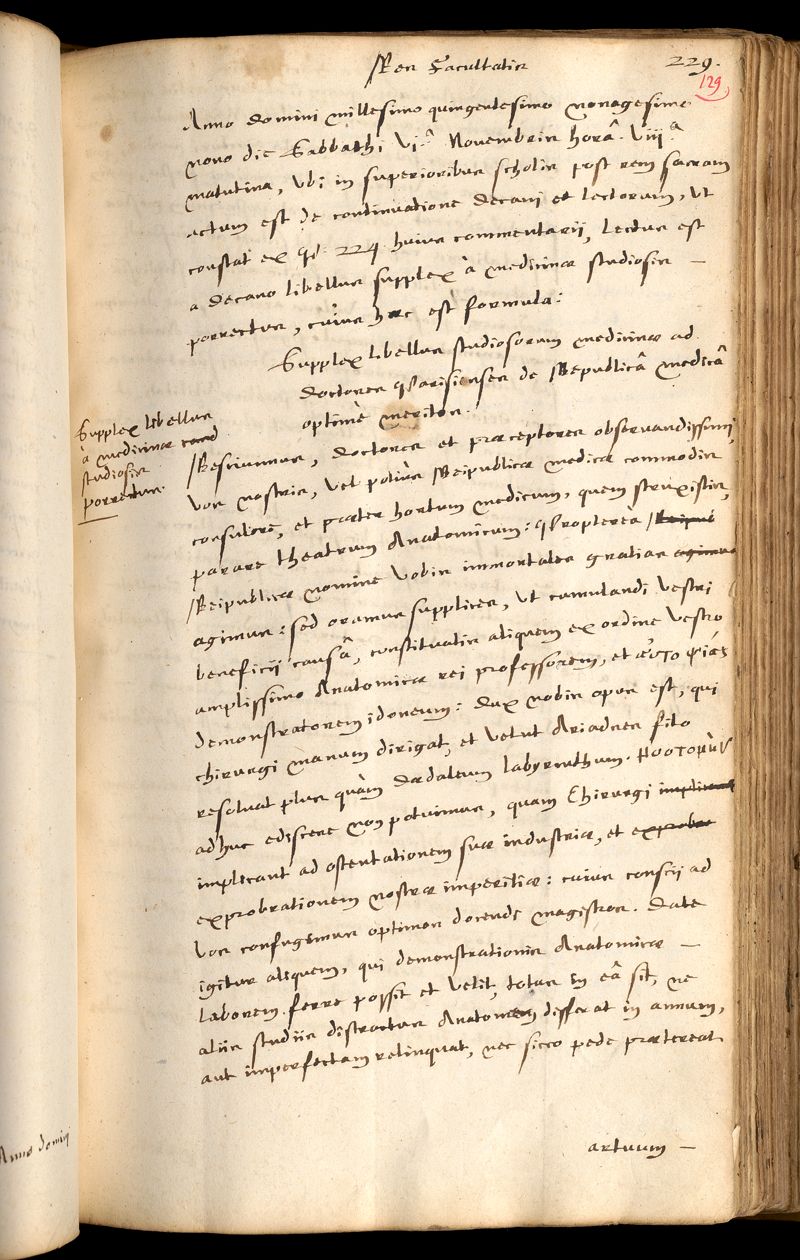 Res Facultatis
229.
129
Anno domini millesimo quingentesimo nonagesimo
nono die Sabbathi vi.a Novembris horâ. viii.a
matutina, vbi in superioribus scholis post rem sacram
actum est de continuatione decani et lectorum, vt
constat ex 224 huius commentarii, lectus est
a decano libellus supplex à medicinæ studiosis —
porrectus, cuius hæc est formula:
Supplex libellus studiosorum medicinæ ad
doctores Parisienses de Republicâ medicâ
optimè meritos.
Supplex libellus
à medicinæ cand
studiosis
porrectus.
Rescivimus, doctores et præceptores observandissimi,
vos nostris, vel potiùs Reipublicæ medicæ commodis
consulere, et præter hortum medicum, quem struxistis,
parare theatrum Anatomicum: Propterea
Reipublicæ nomine vobis immortales gratias agimus
agimus: sed oramus supplices, vt cumulandi vestri
beneficii causâ, constituatis aliquem ex ordine vestro
amplissimo Anatomicæ rei professorem, et
demonstratorem idoneum: Dux nobis opus est, qui
chirurgi manum dirigat, et velut Ariadnes filo
resolvat plus quàm dædaleum labyrinthum.
adhuc ediscere non potuimus, quam Chirurgi implicant
implicant ad ostentationem suæ industriæ, et exprobra
exprobrationem nostræ imperitiæ: cuius conscii ad
vos confugimus optimos docendi magistros. Date
igitur aliquem, qui demonstrationis Anatomicæ —
laborem ferre possit et velit, totus in eâ sit, ne
aliis studiis distractus Anatomen differat in annum,
aut imperfectam relinquat, nec sicco pede prætereat
artuum —
Anno domini